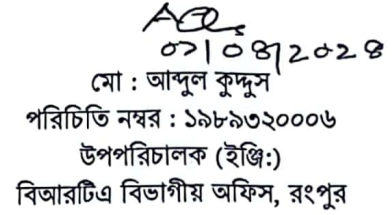 মো : আব্দুল কুদ্দুস
পরিচিতি নম্বর : ১৯৮৯৩২০০০৬
উপপরিচালক (ইঞ্জি:)
বিআরটিএ বিভাগীয় অফিস, রংপুর